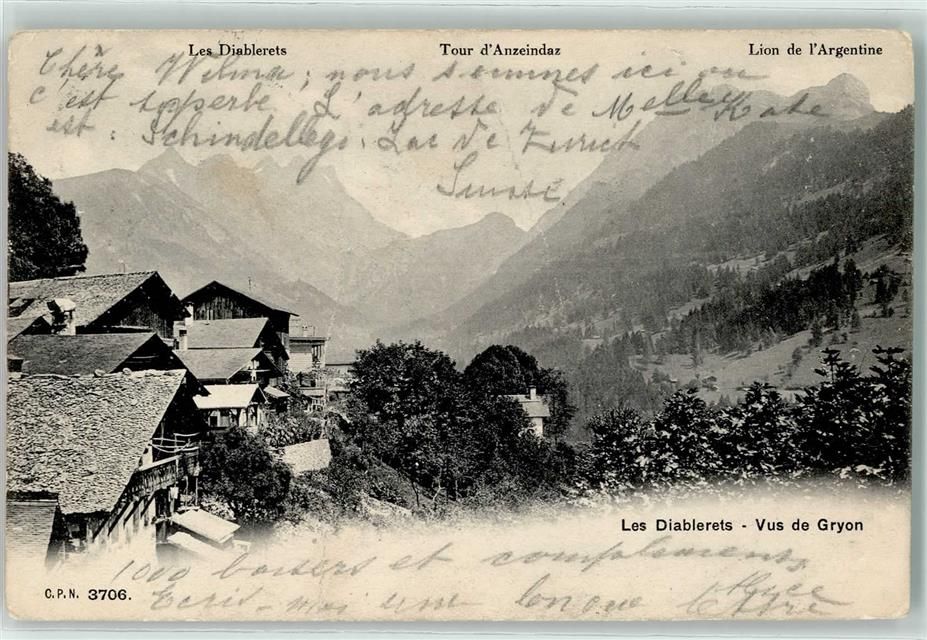 Les Diablerets Tour d'Anzeindaz Lion de l'Argentine
Chère Wilma, nous sommes ici ou
c'est superbe L'adresse de Melle Kate
est : Schindellegi, Lac de Zurich
Suisse
Les Diablerets - Vus de Gryon
1000 baisers et compliments
C.P.N. 3706.
Ecris-moi une longue